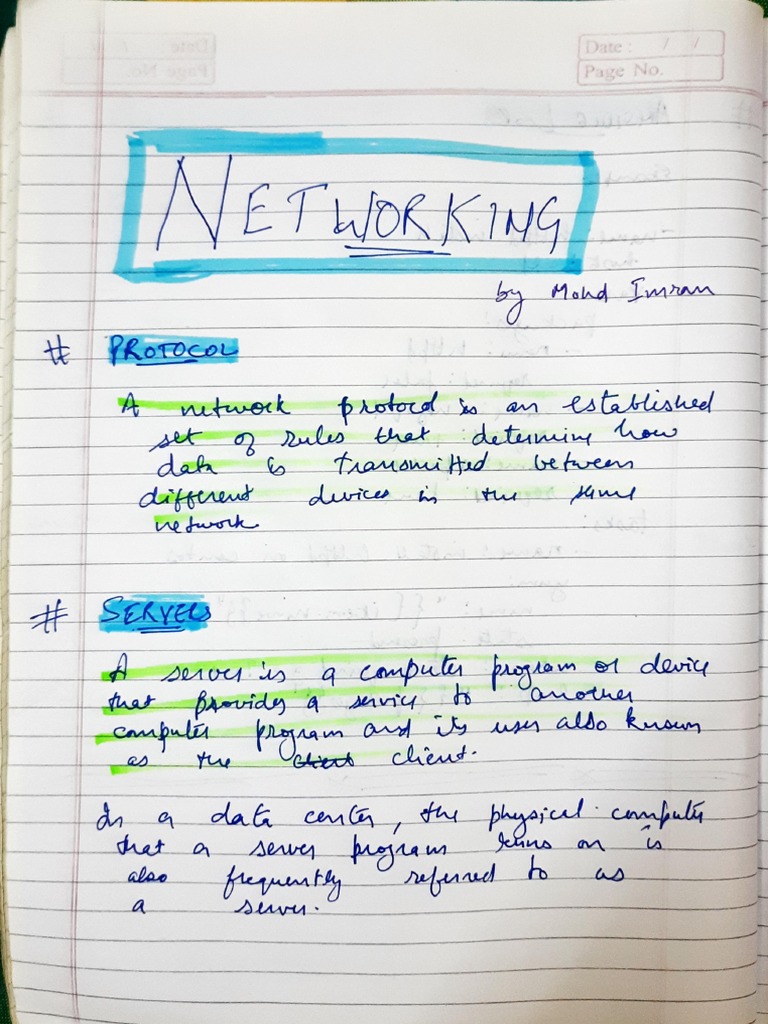 Date : / /
Page No.
NETWORKING
by Mohd Imran
# PROTOCOL
A network protocol is an established
set of rules that determine how
data is transmitted between
different devices in the same
network.
# SERVERS
A server is a computer program or device
that provides a service to another
computer program and its user also known
as the client client.
In a data center, the physical computer
that a server program runs on is
also frequently referred to as
a server.